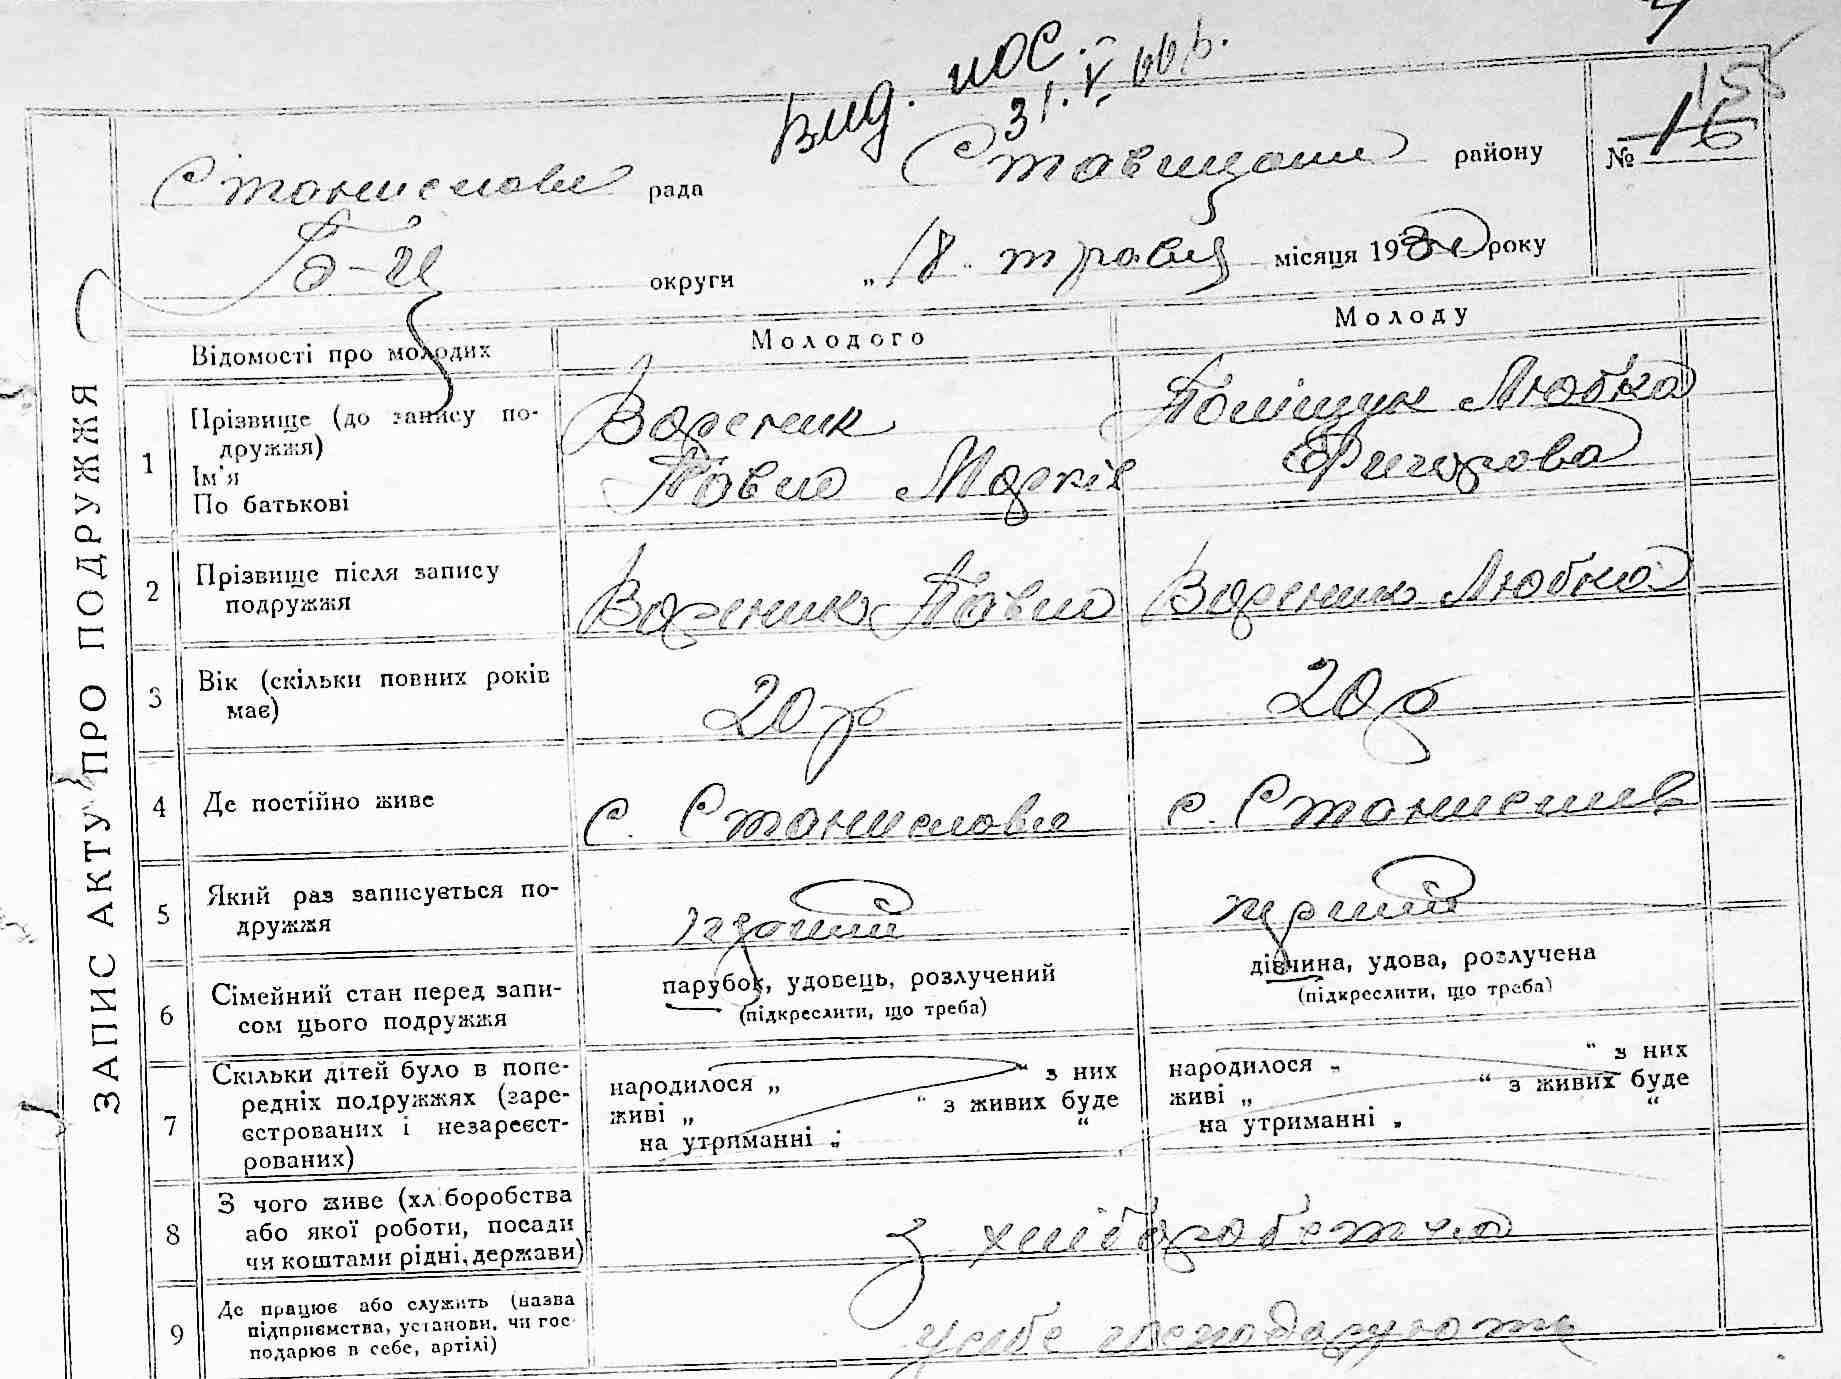 вид. пос.
31. V. 66 р.
ЗАПИС АКТУ ПРО ПОДРУЖЖЯ
Станиславч рада Ставищан району № 16 15
Б-Ц округи „18“ травця місяця 193 року
Відомості про молодих Молодого Молоду
1 Прізвище (до запису подружжя) Ім'я По батькові
Вареник
Павло Марків
Поліщук Любка
Григорова
2 Прізвище після запису подружжя
Вареник Павло
Вареник Любка
3 Вік (скільки повних років має)
20 р
20 р
4 Де постійно живе
с. Станиславч
с.
5 Який раз записується подружжя
перший
перший
6 Сімейний стан перед записом цього подружжя
парубок, удовець, розлучений
(підкреслити, що треба)
дівчина, удова, розлучена
(підкреслити, що треба)
7 Скільки дітей було в попередніх подружжях (зареєстрованих і незареєстрованих)
народилося „ “ з них
живі „ “ з живих буде
на утриманні „ “
народилося „ “ з них
живі „ “ з живих буде
на утриманні „ “
8 З чого живе (хліборобства або якої роботи, посади чи коштами рідні, держави)
З хліборобства
9 Де працює або служить (назва підприємства, установи, чи господарює в себе, артілі)
у себе господарюють